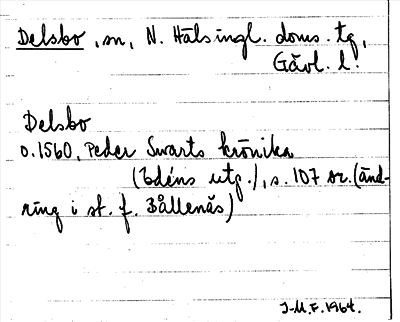 Delsbo, sn, N. Hälsingl. doms. tg,
Gävl. l.
Delsbo
o.1560, Peder Swarts krönika
(Edéns utg.), s. 107 ar. (änd-
ring i st. f. Bållenäs)
J-M.F. 1964.